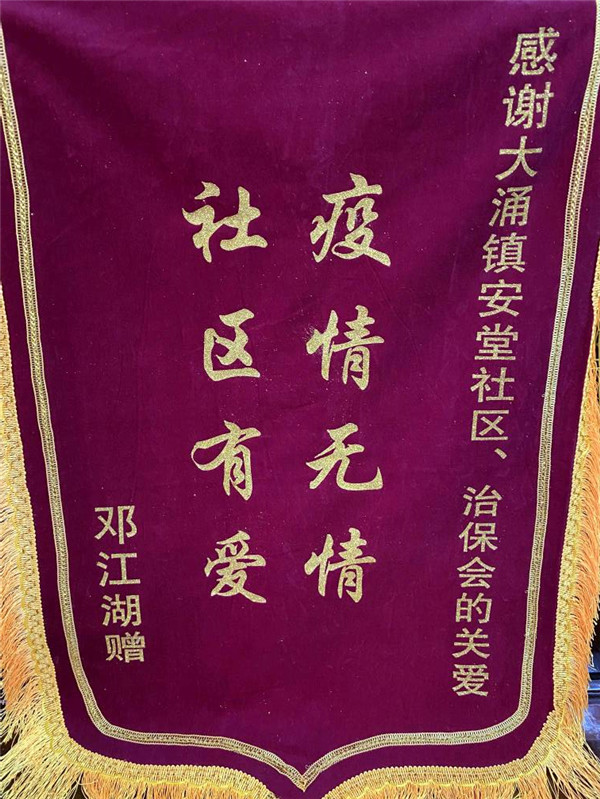 感谢大涌镇安堂社区、治保会的关爱
疫情无情
社区有爱
邓江湖赠